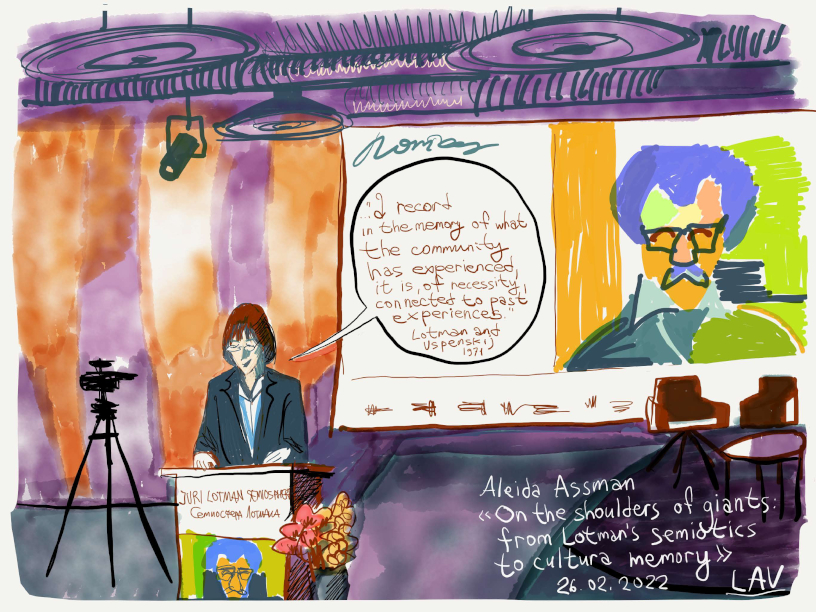 "I record
in the memory of what
the community
has experienced,
it is, of necessity,
connected to past
experiences."
Lotman and
Uspenskij
1971
JURI LOTMAN SEMIOSPHERE
Семиосфера Лотмана
Aleida Assman
«On the shoulders of giants:
from Lotman's semiotics
to cultura memory»
26.02.2022
LAV